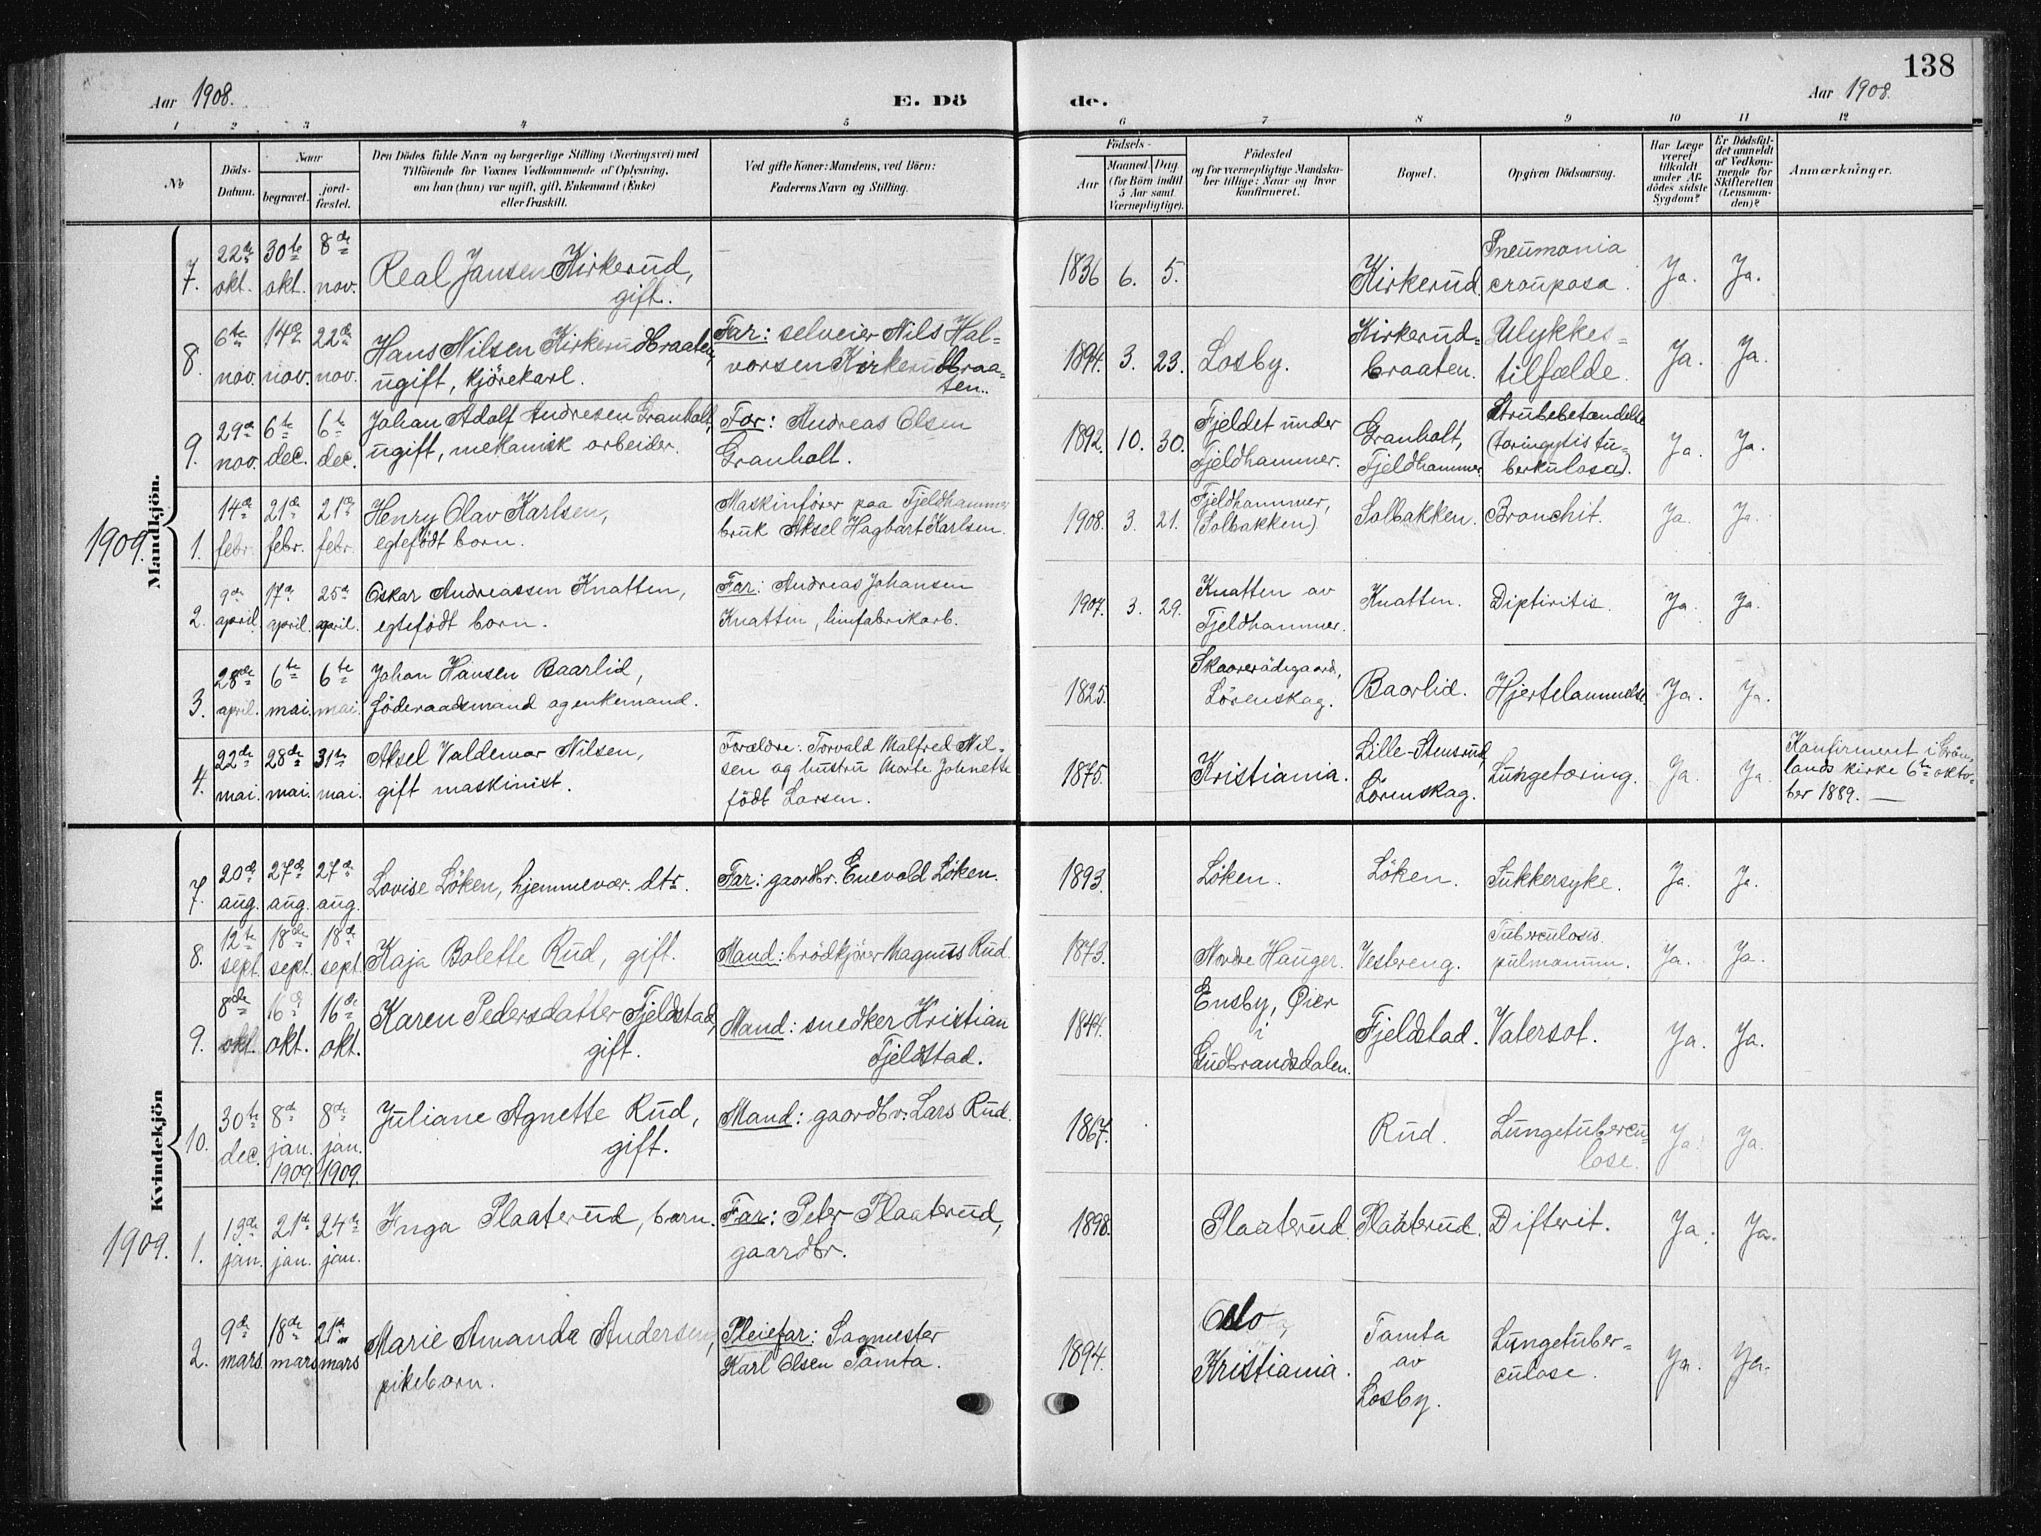 138
Aar 1908.
E. Dö
de.
Aar 1908.
1 2 3 4 5 6 7 8 9 10 11 12
No
Döds-
Datum.
Naar
begravet.
jord-
fæstet.
Den Dödes fulde Navn og borgerlige Stilling (Næringsvei) med
Tilföiende for Voxnes Vedkommende af Oplysning,
om han (hun) var ugift, gift, Enkemand (Enke)
eller fraskilt.
Ved gifte Koner: Mandens, ved Börn:
Faderens Navn og Stilling.
Födsels-
Aar
Maaned Dag
(for Börn indtil
5 Aar samt
Værnepligtige).
Födested
og for værnepligtige Mandska-
ber tillige: Naar og hvor
konfirmeret.
Bopæl.
Opgiven Dödsaarsag.
Har Læge
været
tilkaldt
under Af-
dödes sidste
Sygdom?
Er Dödsfal-
det anmeldt
af Vedkom-
mende for
Skifteretten
(Lensman-
den)?
Anmærkninger.
Mandkjön.
7. 22de okt. 30te okt. 8de nov. Real Jansen Kirkerud, gift. 1836 6. 5. Kirkerud. Pneumonia crouposa. Ja. Ja.
8. 6te nov. 14de nov. 22de nov. Hans Nilsen Kirkerudbraaten, ugift, kjörekarl. Far: selveier Nils Hal-
vorsen Kirkerudbraa-
ten. 1894. 3. 23. Losby. Kirkerud-
braaten. Ulykkes-
tilfælde. Ja. Ja.
9. 29de nov. 6te dec. 6te dec. Johan Adolf Andresen Granholt, ugift, mekanisk arbeider. Far: Andreas Olsen
Granholt. 1892. 10. 30. Fjeldet under
Fjeldhammer. Granholt,
Fjeldhammer Strubebetændelse
(laringytis tu-
berkulosa). Ja. Ja.
1909.
1. 14de febr. 21de febr. 21de febr. Henry Olav Karlsen,
egtefödt barn. Maskinförer paa Fjeldhammer
bruk Aksel Hagbart Karlsen. 1908. 3. 21. Fjeldhammer,
(Solbakken) Solbakken. Bronchit. Ja. Ja.
2. 9de april. 17de april. 25de april. Oskar Andreassen Knatten,
egtefödt barn. Far: Andreas Johansen
Knatten, limfabrikarb. 1907. 3. 29. Knatten av
Fjeldhammer. Knatten. Diptiritis. Ja. Ja.
3. 28de april. 6te mai. 6te mai. Johan Hansen Baarlid,
föderaadsmand og enkemand. 1825. Skaarerödegaard,
Lörenskog. Baarlid. Hjertelammelse. Ja. Ja.
4. 22de mai. 28de mai. 31te mai. Aksel Valdemar Nilsen,
gift maskinist. Forældre: Torvald Malfred Nil-
sen og hustru Marte Johnette
födt Larsen. 1875. Kristiania. Lille-Stensrud,
Lörenskog. Lungetæring. Ja. Ja. Konfirmert i Grön-
lands kirke 6te okto-
ber 1889.
Kvindekjön
7. 20de aug. 27de aug. 27de aug. Lovise Löken, hjemmevær. dtr. Far: gaardbr. Enevold Löken. 1893. Löken. Löken. Sukkersyke. Ja. Ja.
8. 12te sept. 18de sept. 18de sept. Kaja Bolette Rud, gift. Mand: brödkjörer Magnus Rud. 1873. Nordre Hauger. Vesbreng. Tuberculosis
pulmonum. Ja. Ja.
9. 8de okt. 16de okt. 16de okt. Karen Pedersdatter Fjeldstad,
gift. Mand: snedker Kristian
Fjeldstad. 1844. Ensby, Öier
i
Gudbrandsdalen. Fjeldstad. Vatersot. Ja. Ja.
10. 30te dec. 8de jan. 1909. 8de jan. 1909. Juliane Agnette Rud,
gift. Mand: gaardbr. Lars Rud. 1867. Rud. Lungetubercu-
lose. Ja. Ja.
1909.
1. 13de jan. 21de jan. 24de jan. Inga Plaaterud, barn. Far: Peter Plaaterud,
gaardbr. 1898. Plaaterud. Plaaterud. Difterit. Ja. Ja.
2. 9de mars. 18de mars 21de mars Marie Amanda Andersen,
pikebarn. Pleiefar: Sagmester
Karl Olsen Tomta. 1894. Oslo,
Kristiania. Tomta
av
Losby. Lungetuber-
culose. Ja. Ja.